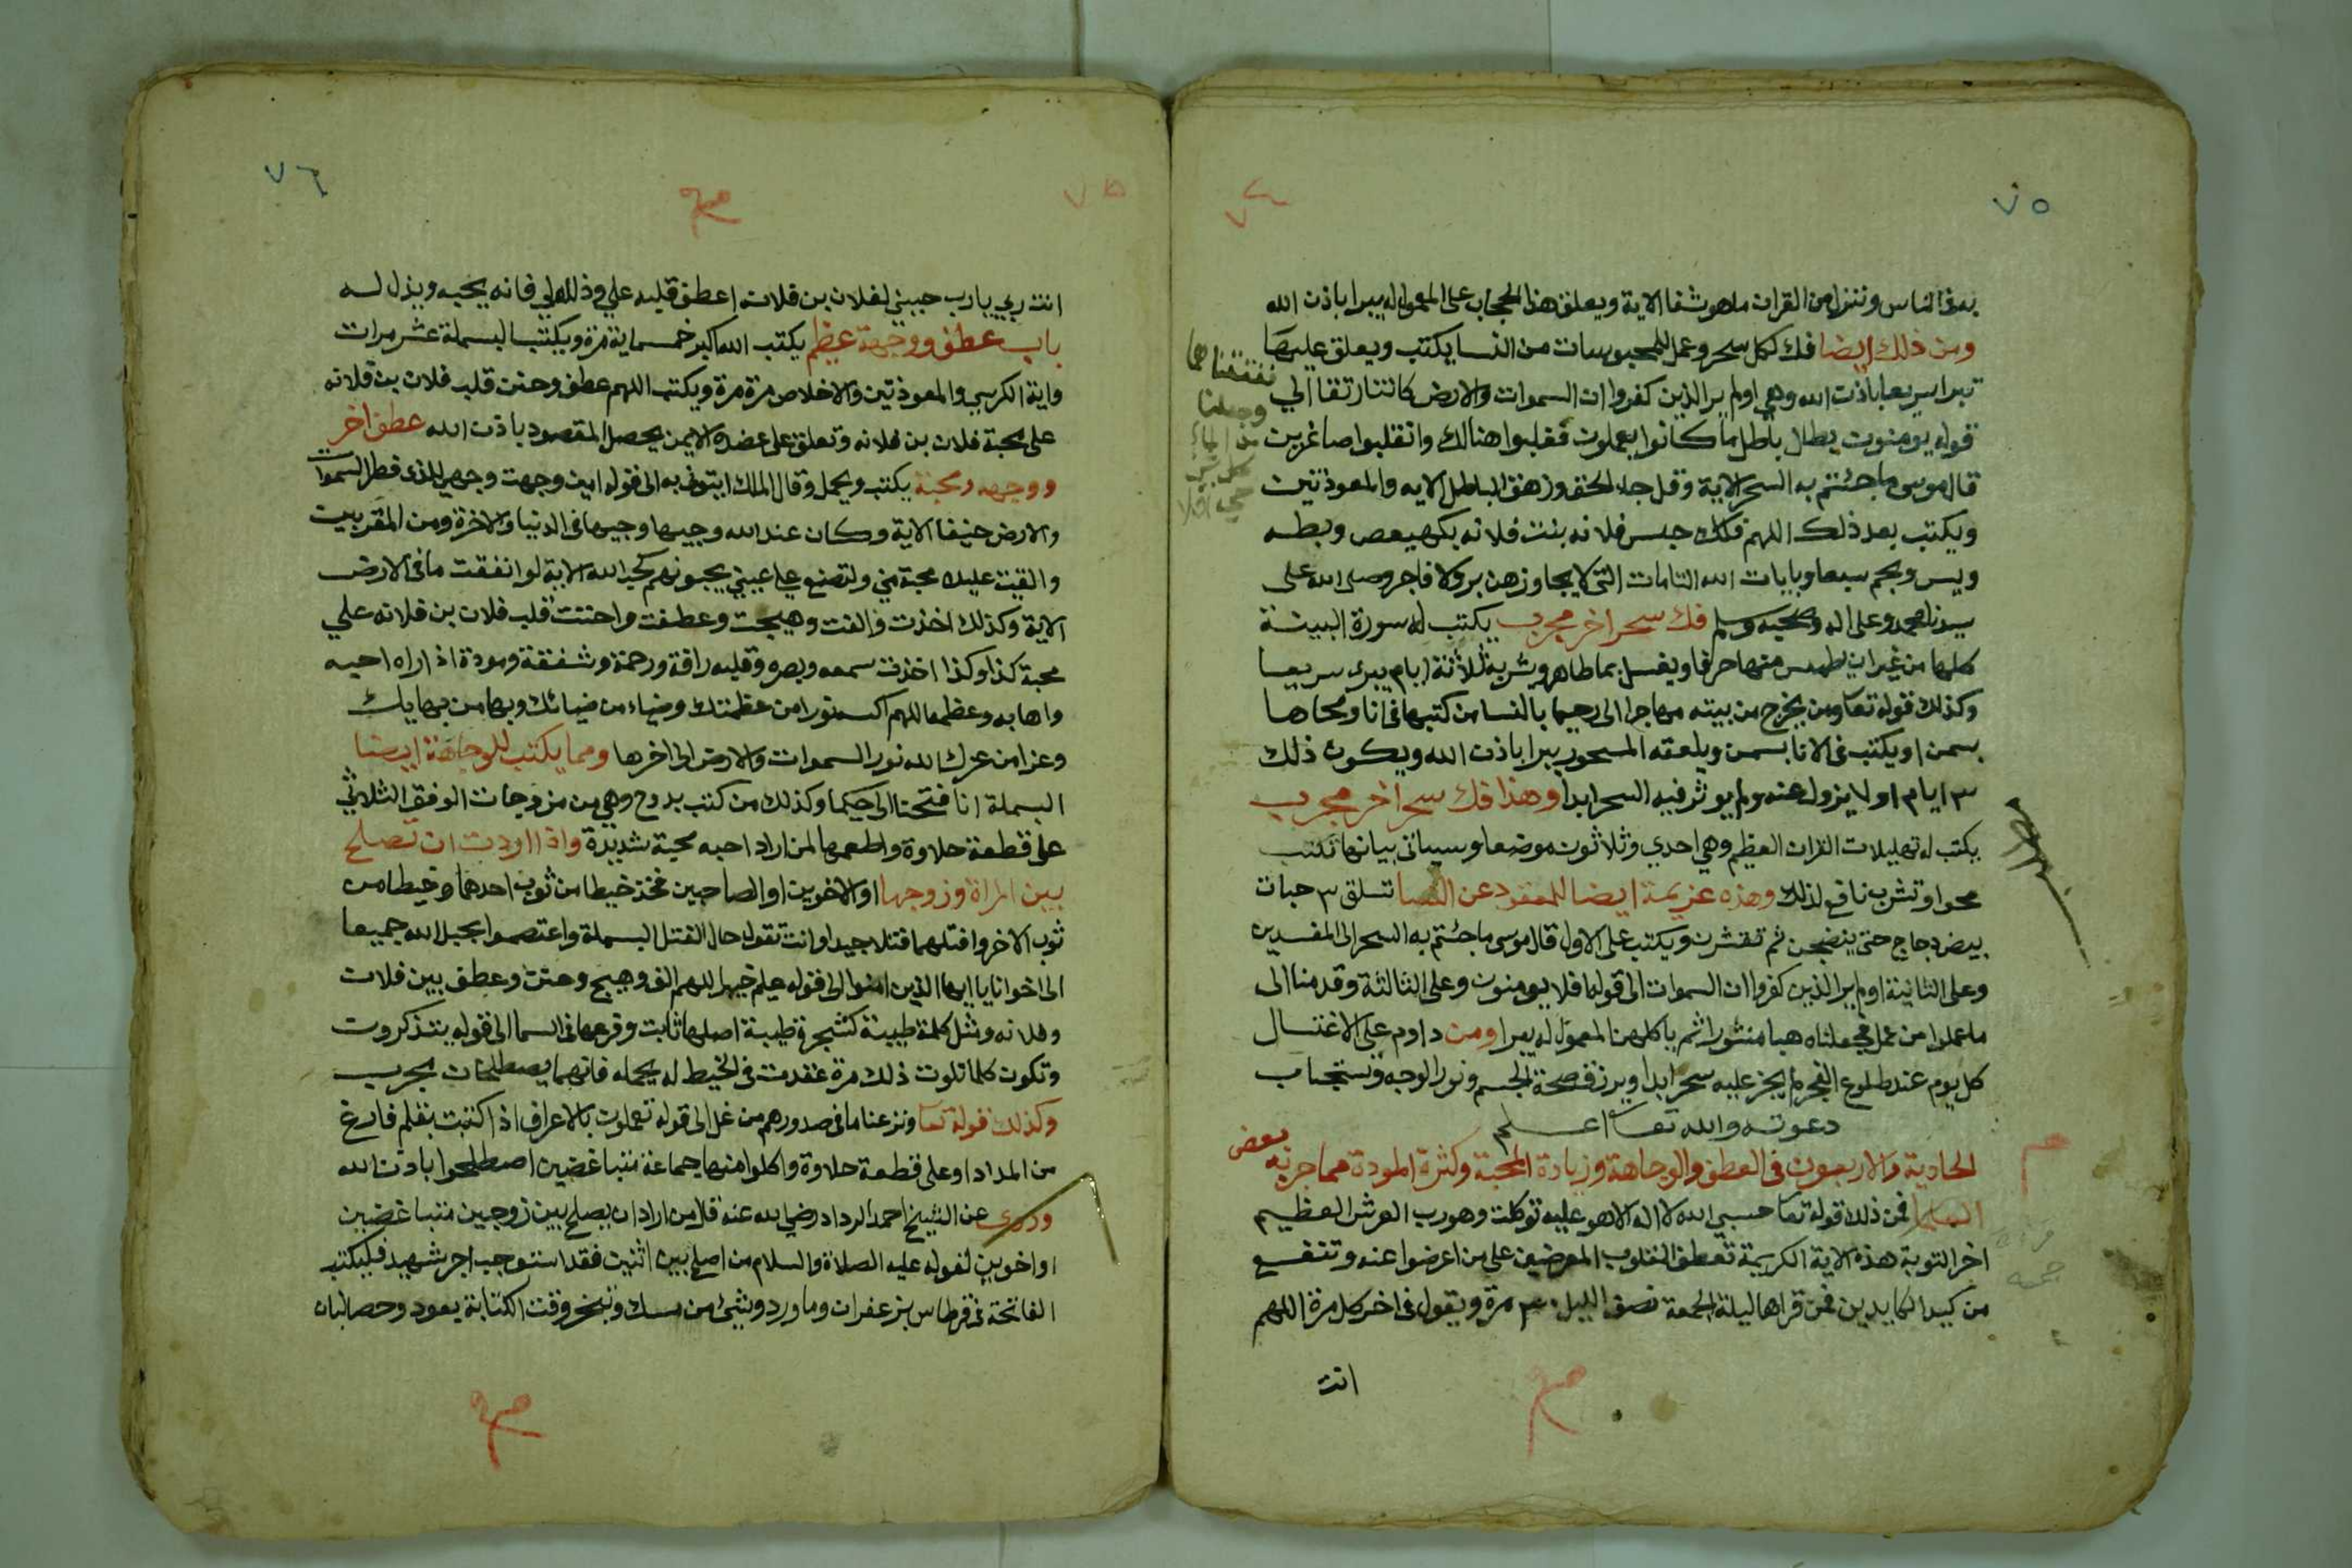 ٧٥
به في الناس وننزل من القران ما هو شفا الاية ويعلق هذا الحجاب على المعمول له يبرا باذن الله
ومن ذلك ايضا فك لكل سحر وعمل للمحبوسات من النسا يكتب ويعلق عليها
تبرا سريعا باذن الله وهي اولم ير الذين كفروا ان السموات والارض كانتا رتقا الي
ففتقناهما
وجعلنا
من الماء
كل شي
حي افلا
قوله يومنون بطل باطل ما كانوا يعملون فغلبوا هنالك وانقلبوا صاغرين
قال موسى ما جئتم به السحر الاية وقل جاء الحق وزهق الباطل الايه والمعوذتين
ويكتب بعد ذلك اللهم فك حبس فلانه بنت فلانه بكهيعص وبطه
ويس وبحم سبعا وبايات الله التامات التي لا يجاوزهن بر ولا فاجر وصلى الله على
سيدنا محمد وعلى اله وصحبه وسلم فك سحر اخر مجرب يكتب له سورة البينة
كلها من غير ان يطمس منها حرفا ويغسل بما طاهر ويشربه ثلاثة ايام يبرى سريعا
وكذلك قوله تعا ومن يخرج من بيته مهاجرا الى رحيما بالنسا من كتبها في انا ومحاها
بسمن او يكتب في الانا بسمن ويلعقه المسحور يبرا باذن الله ويكون ذلك
٣ ايام او ٧ يزول عنه ولم يوثر فيه السحر ابدا وهذا فك سحر اخر مجرب
يكتب له تهليلات القران العظيم وهي احدي وثلاثون موضعا وسياتي بيانها تكتب
محوا وتشرب نافع لذلك وهذه عزيمة ايضا للمعقود عن النسا تسلق ٣ حبات
بيض دجاج حتى ينضجن ثم تقشرن ويكتب على الاول قال موسى ما جئتم به السحر الى المفسدين
وعلى الثانية اولم ير الذين كفروا ان السموات الى قوله افلا يومنون وعلى الثالثة وقدمنا الى
ما عملوا من عمل فجعلناه هبا منثورا ثم ياكلهن المعمول له يبرا ومن داوم على الاغتسال
كل يوم عند طلوع الفجر لم يجز عليه سحر ابدا ويرزق صحة الجسم ونور الوجه وتستجاب
دعوته والله تعا اعلم
الحادية والاربعون في العطف والوجاهة وزيادة المحبة وكثرة المودة مما جربه بعض
العلما فمن ذلك قوله تعا حسبي الله لا اله الا هو عليه توكلت وهو رب العرش العظيم
اخر التوبة هذه الاية الكريمة تعطف القلوب المعرضين على من اعرضوا عنه وتنفع
من كيد الكايدين فمن قراها ليلة الجمعة نصف الليل مرة ويقول في اخر كل مرة اللهم
انت
٧٦
٧٥
انت ربي يا رب حببني لفلان بن فلان اعطف قلبه علي وذلله لي فانه يحبه ويذل له
باب عطف ووجهة عظيم يكتب الله اكبر خمسماية مرة ويكتب البسملة عشر مرات
واية الكرسي والمعوذتين والاخلاص مرة مرة ويكتب اللهم عطف وحنن قلب فلان بن فلانه
على محبة فلان بن فلانه وتعلق على عضده الايمن يحصل المقصود باذن الله عطف اخر
ووجهه ومحبة يكتب ويحمل وقال الملك ايتوني به الى قوله امين وجهت وجهي للذي فطر السموات
والارض حنيفا الاية وكان عند الله وجيها وجيها في الدنيا والاخرة ومن المقربين
والقيت عليك محبة مني ولتصنع على عيني يحبونهم كحب الله الاية لو انفقت ما في الارض
الاية وكذلك اخذت والفت وهيجت وعطفت واحننت قلب فلان بن فلانه علي
محبة كذا وكذا اخذت سمعه وبصره وقلبه رافة ورحمة وشفقة ومودة اذا راه احبه
واهابه وعظمه اللهم اكسه نورا من عظمتك وضياء من ضيائك وبها من بهايك
وعزا من عزك الله نور السموات والارض الى اخرها ومما يكتب للوجاهة ايضا
البسملة انا فتحنا الى حكيما وكذلك من كتب بدوح وهي من مزدوجات الوفق الثلاثي
على قطعة حلاوة واطعمها لمن اراد احبه محبة شديدة واذا اردت ان تصلح
بين المراة وزوجها او الاخوين او الصاحبين فخذ خيطا من ثوب احدهما وخيطا من
ثوب الاخر وافتلهما فتلا جيدا وانت تقول حال الفتل البسملة واعتصموا بحبل الله جميعا
الى اخوانا يا ايها الذين امنوا الى قوله عليم خبير اللهم الف وهيج وحنن وعطف بين فلان
وفلانه ومثل كلمة طيبة كشجرة طيبة اصلها ثابت وفرعها في السما الى قوله يتذكرون
وتكون كلما تلوت ذلك مرة عقدت في الخيط له يحمله فانهما يصطلحان مجرب
وكذلك قوله تعا ونزعنا ما في صدورهم من غل الى قوله تعملون بالاعراف اذا كتبت بقلم فارغ
من المداد او على قطعة حلاوة واكلوا منها جماعة متباغضين اصطلحوا باذن الله
وروى عن الشيخ احمد الرداد رضي الله عنه قال من اراد ان يصلح بين زوجين متباغضين
او اخوين لقوله عليه الصلاة والسلام من اصلح بين اثنين فقد استوجب اجر شهيد فليكتب
الفاتحة في قرطاس بزعفران وماورد وشئ من مسك وتبخر وقت الكتابة بعود وحصالبان